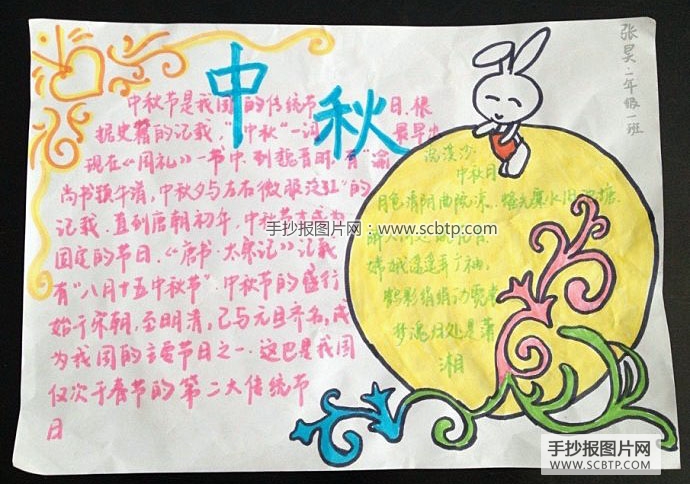 中秋
张昊二年级一班
中秋节是我国的传统节日.根
据史籍的记载，"中秋"一词最早出
现在《周礼》一书中.到魏晋时，有"谕
尚书镇牛渚，中秋夕与左右微服泛江"的
记载.直到唐朝初年，中秋节才成为
固定的节日.《唐书·太宗记》记载
有"八月十五中秋节"中秋节的盛行
始于宋朝，至明清，已与元旦齐名，成
为我国的主要节日之一.这巴是我国
仅次于春节的第二大传统节
日
浣溪沙
中秋日
月色清阴曲院凉
嫦娥遥遥弄广袖，
鹤影绡绡动霓裳
梦魂归处是萧
湘
手抄报图片网：www.scbtp.com
手抄报图片网
WWW.SCBTP.COM